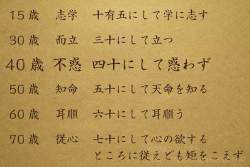 15歳 志学 十有五にして学に志す
30歳 而立 三十にして立つ
40歳 不惑 四十にして惑わず
50歳 知命 五十にして天命を知る
60歳 耳順 六十にして耳順う
70歳 従心 七十にして心の欲する
ところに従えども矩をこえず